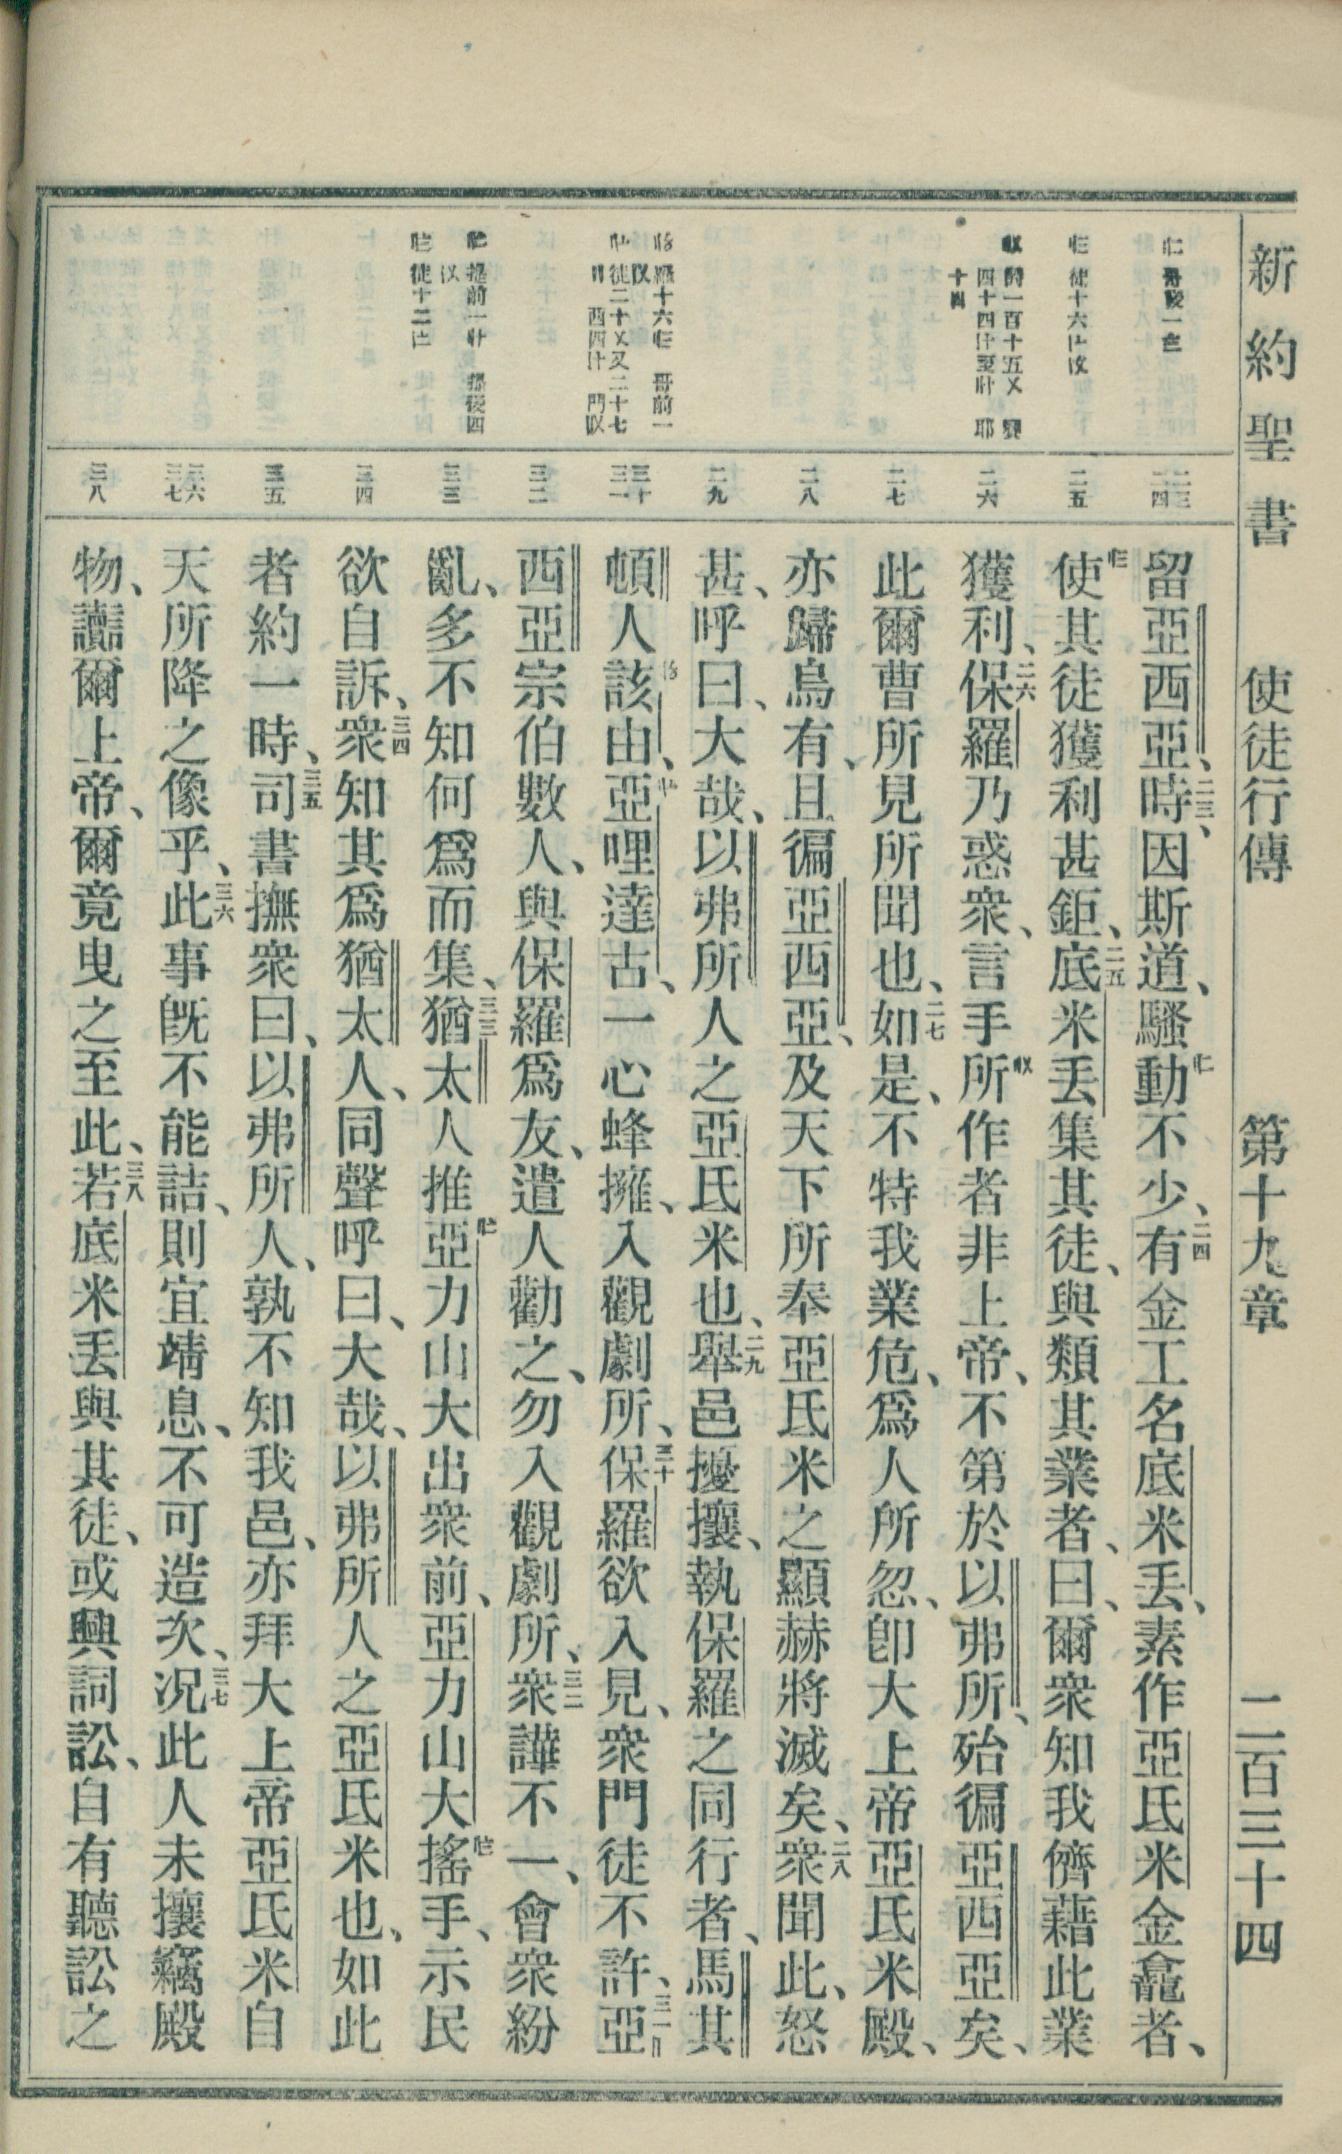 新約聖書 使徒行傳 第十九章 二百三十四
二三 二四
二五
二六
二七
二八
二九
三十 三一
三二
三三
三四
三五
三六 三七
三八
留亞西亞、二三時、因斯道、騷動不少、二四有金工名底米丟、素作亞氐米金龕者、
使其徒獲利甚鉅、二五底米丟集其徒、與類其業者、曰、爾衆知我儕藉此業
獲利、二六保羅乃惑衆、言手所作者非上帝、不第於以弗所、殆徧亞西亞矣、
此爾曹所見所聞也、二七如是、不特我業危、爲人所忽、卽大上帝亞氐米殿、
亦歸烏有、且徧亞西亞、及天下所奉亞氐米之顯赫將滅矣、二八衆聞此、怒
甚、呼曰、大哉、以弗所人之亞氐米也、二九舉邑擾攘、執保羅之同行者、馬其
頓人該由、亞哩達古、一心蜂擁、入觀劇所、三十保羅欲入見、衆門徒不許、三一亞
西亞宗伯數人、與保羅爲友、遣人勸之、勿入觀劇所、三二衆譁不一、會衆紛
亂、多不知何爲而集、三三猶太人推亞力山大出衆前、亞力山大搖手、示民
欲自訴、三四衆知其爲猶太人、同聲呼曰、大哉、以弗所人之亞氐米也、如此
者約一時、三五司書撫衆曰、以弗所人、孰不知我邑、亦拜大上帝亞氐米自
天所降之像乎、三六此事旣不能詰、則宜靖息、不可造次、三七况此人未攘竊殿
物、讟爾上帝、爾竟曳之至此、三八若底米丟與其徒、或興詞訟、自有聽訟之